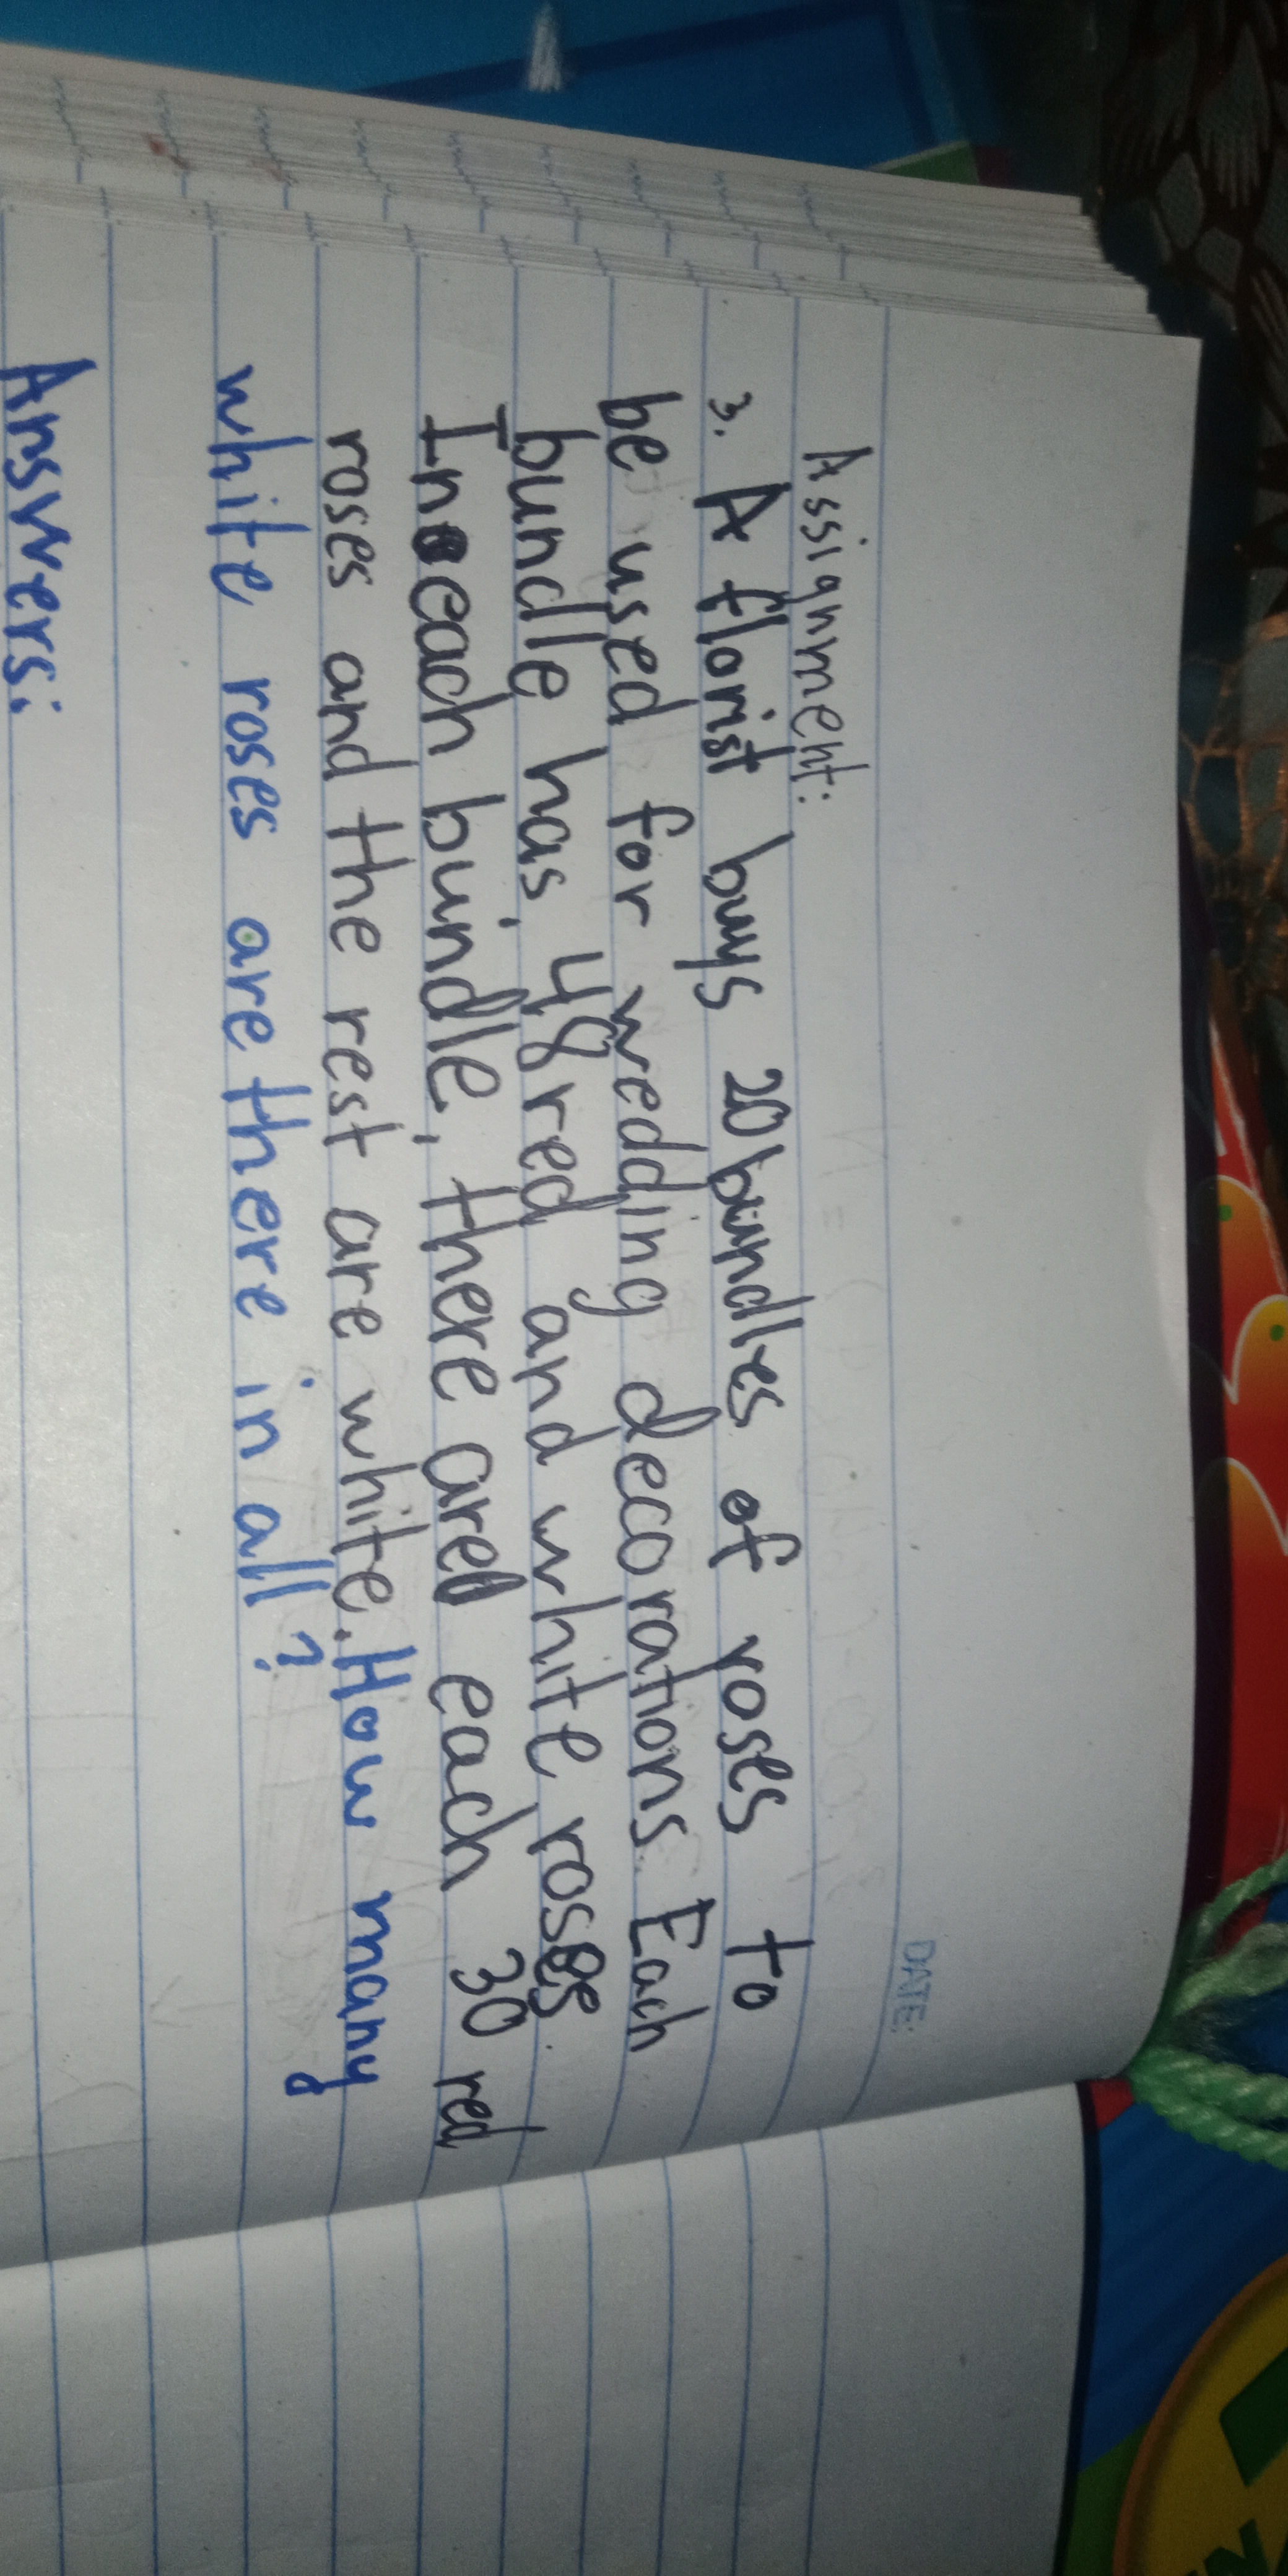 DATE:
Assignment:
3. A florist buys 20 bundles of roses to
be used for wedding decorations. Each
bundle has 48 red and white roses.
In each bundle, there are each 30 red
roses and the rest are white. How many
white roses are there in all?
Answers: